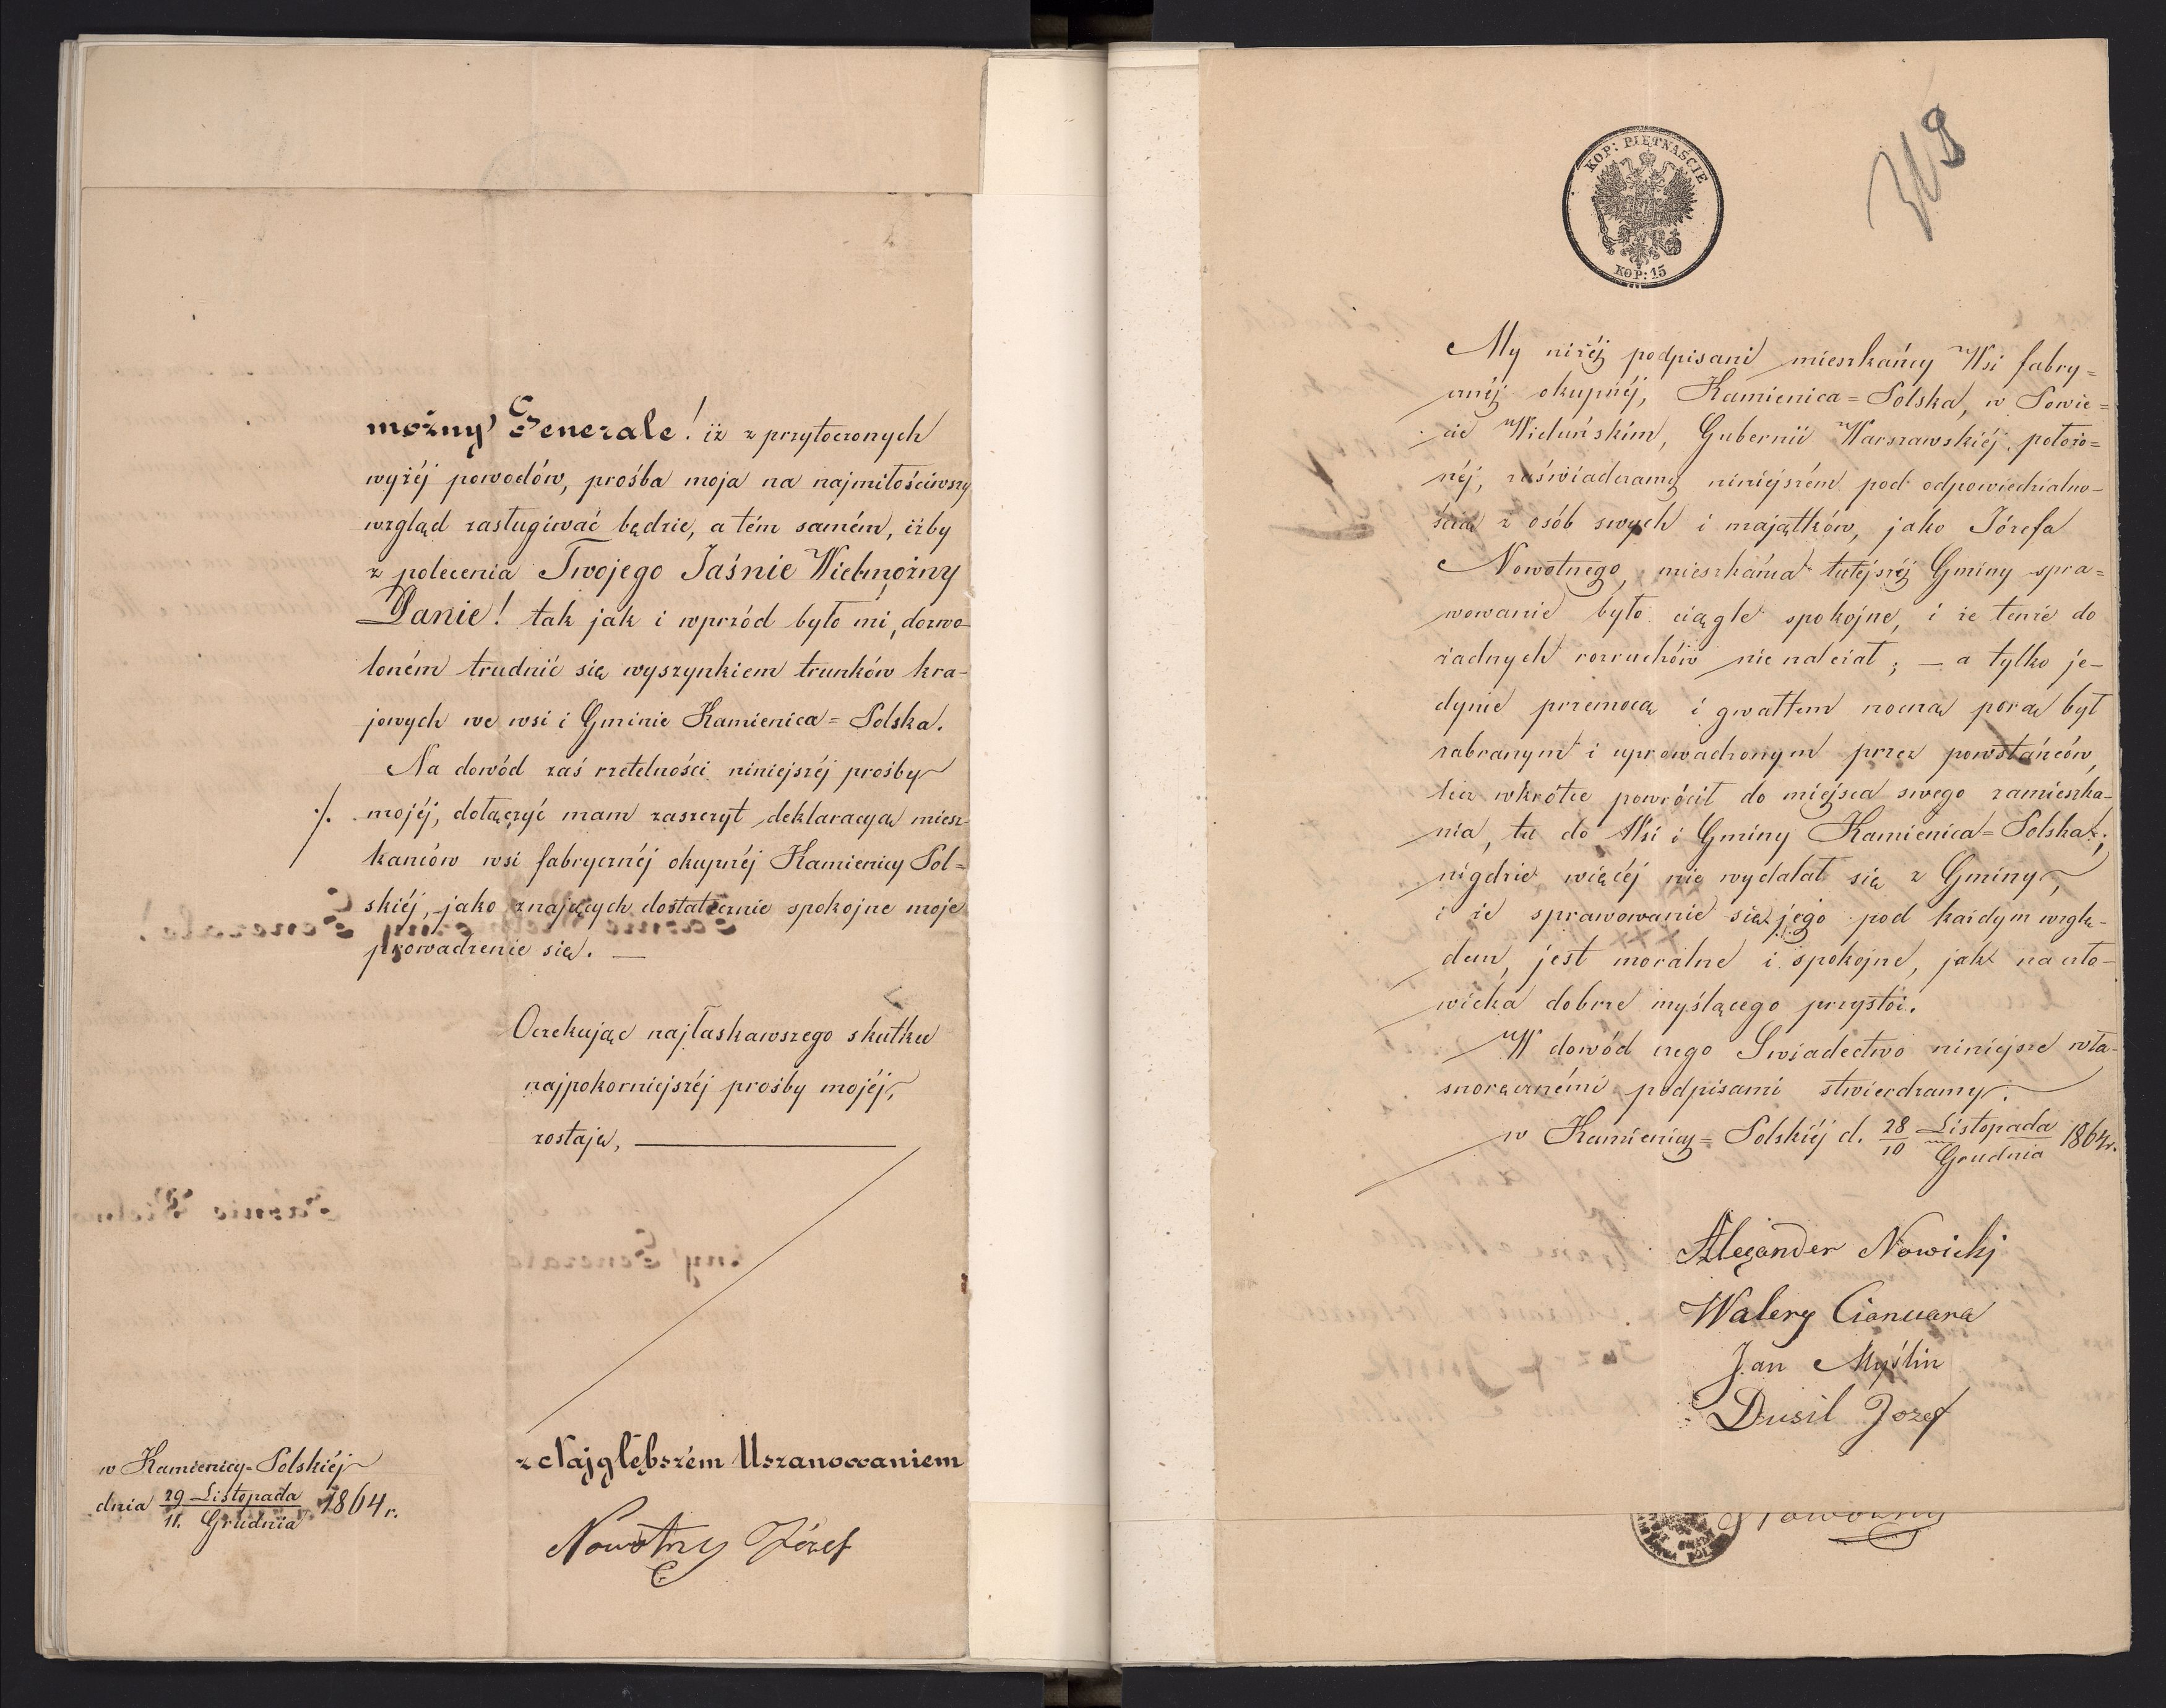 możny Generale! iż z przytoczonych
wyżéj powodów, prośba moja na najmiłościwszy
wzgląd zasługiwać będzie, a tém samém, iżby
z polecenia Twojego Jaśnie Wielmożny
Panie! tak jak i wprzód było mi, dozwo-
loném trudnić się wyszynkiem trunków kra-
jowych we wsi i Gminie Kamienica=Polska.
Na dowód zaś rzetelności niniejszéj prośby
./. mojéj, dołączyć mam zaszczyt deklaracyą miesz-
kańców wsi fabrycznéj okupnéj Kamienicy Pol=
skiéj, jako znających dostatecznie spokojne moje
prowadzenie się. —
Oczekując najłaskawszego skutku
najpokorniejszéj prośby mojéj,
zostaję,
z Najgłębszém Uszanowaniem
Nowotny Józef
w Kamienicy-Polskiéj
dnia 29 Listopada 1864 r.
11. Grudnia
KOP: PIĘTNAŚCIE
KOP: 15
My niżéj podpisani mieszkańcy Wsi fabry=
cznéj okupnéj, Kamienica=Polska, w Powie=
cie Wieluńskim, Gubernii Warszawskiéj położo=
néj, zaświadczamy niniejszém pod odpowiedzialno-
ścią z osób swych i majątków, jako Józefa
Nowotnego, mieszkańca tutejszéj Gminy spra=
wowanie było ciągle spokojne, i że tenże do
żadnych rozruchów nie należał; — a tylko je-
dynie przemocą i gwałtem nocną porą był
zabranym i uprowadzonym przez powstańców,
lecz wkrótce powrócił do miejsca swego zamieszka-
nia, tu do Wsi i Gminy Kamienica=Polska;
nigdzie więcéj nie wydalał się z Gminy,
i że sprawowanie się jego pod każdym wzglę-
dem, jest moralne i spokojne, jak na czło-
wieka dobrze myślącego przystoi.
W dowód czego Swiadectwo niniejsze wła-
snoręcznémi podpisami stwierdzamy.
w Kamienicy=Polskiéj d. 28 Listopada 1864 r.
10 Grudnia
Alexander Nowicki
Walery Cianciara
Jan Myślin
Dusil Jozef